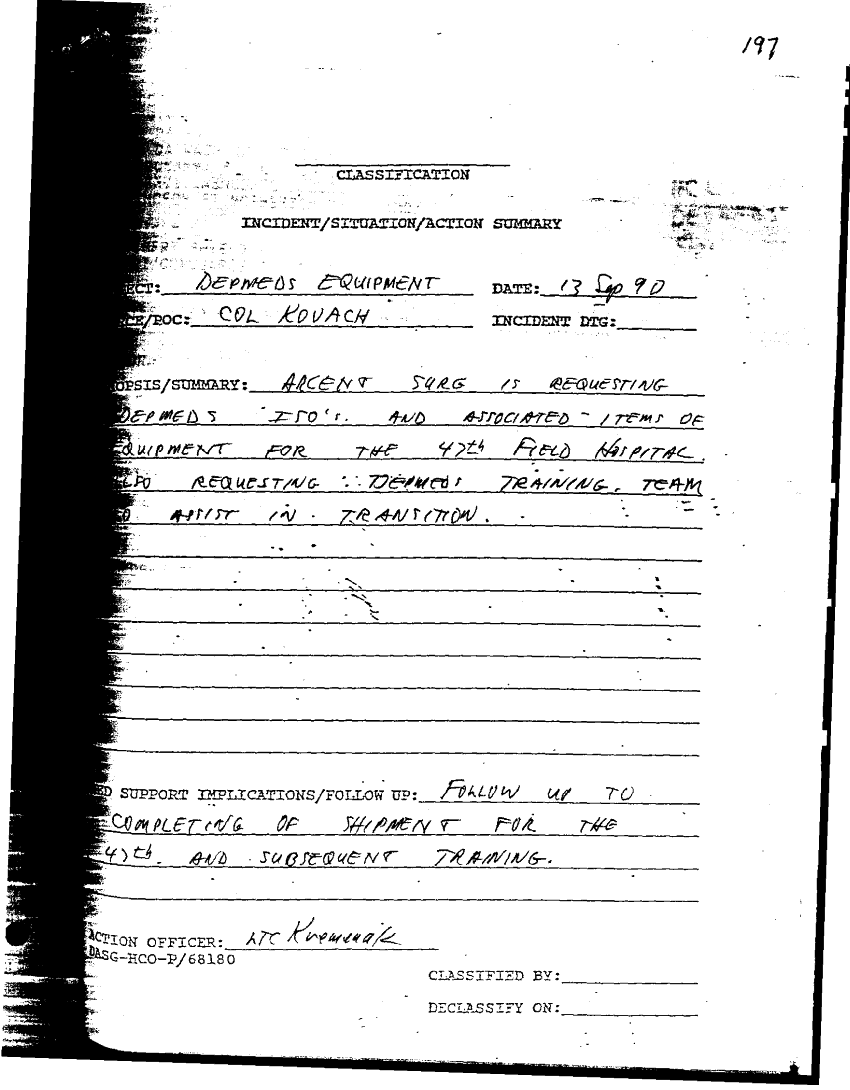 197
CLASSIFICATION
INCIDENT/SITUATION/ACTION SUMMARY
ECT: DEPMEDS EQUIPMENT DATE: 13 Sep 90
CE/POC: COL KOVACH INCIDENT DTG:
OPSIS/SUMMARY: ARCENT SURG IS REQUESTING
DEPMEDS ISO's. AND ASSOCIATED ITEMS OF
EQUIPMENT FOR THE 47th FIELD HOSPITAL.
LSO REQUESTING DEPMEDS TRAINING TEAM
O ASSIST IN TRANSITION.
ED SUPPORT IMPLICATIONS/FOLLOW UP: FOLLOW UP TO
COMPLETING OF SHIPMENT FOR THE
47th. AND SUBSEQUENT TRAINING.
ACTION OFFICER: LTC Kremenak
DASG-HCO-P/68180
CLASSIFIED BY:
DECLASSIFY ON: